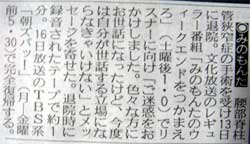 ●みのもんた　腰部脊柱
管狭窄症の手術を受け
に退院。文化放送のレギュ
ラー番組「みのもんたのウ
イークエンドをつかまえ
ろ」(土曜後1・0)でリ
スナーに向け「ご迷惑をお
かけしました。色々な方に
お世話になったけど、今度
は自分が世話する立場にな
らなきゃいけない」とメッ
セージを寄せた。退院時に
録音されたテープで約1
分。16日放送のTBS系
「朝ズバッ!」(月〜金曜
前5・30)で完全復帰する。